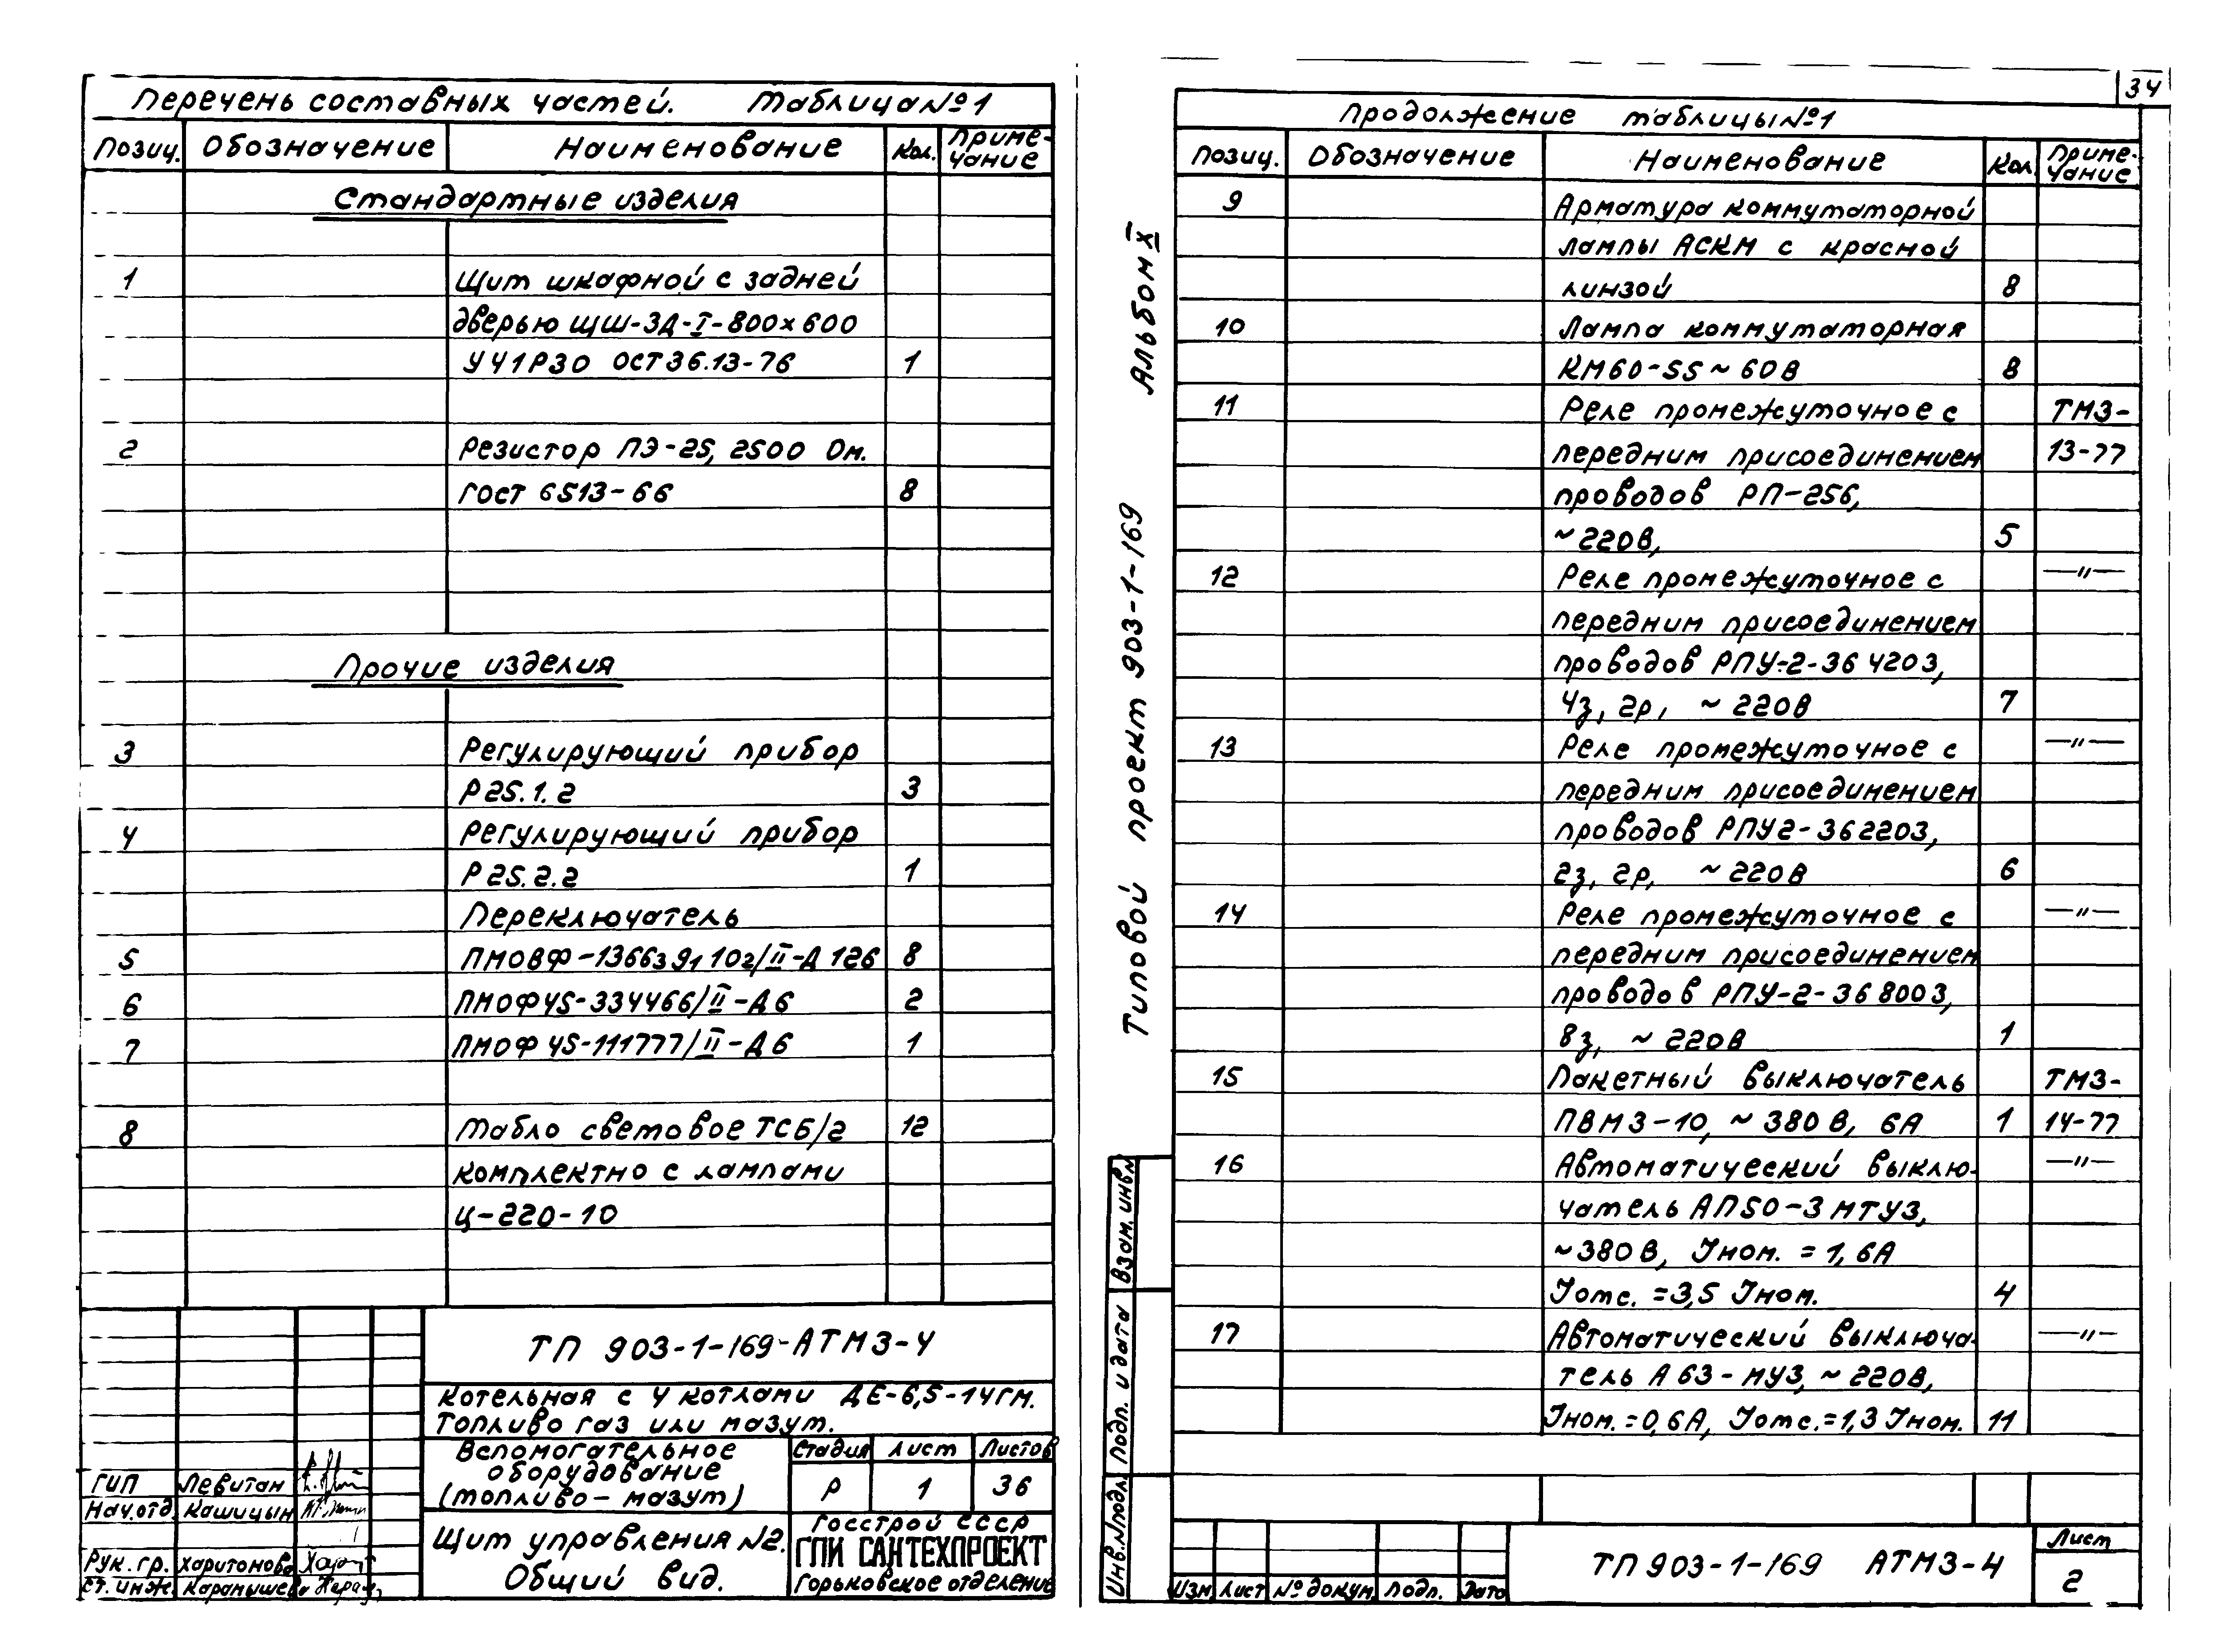 Перечень составных частей. Таблица №1
Позиц. Обозначение Наименование Кол. Приме-
чание
Стандартные изделия
1 Щит шкафной с задней
дверью ЩШ-ЗД-I-800х600
УЧ1Р30 ОСТ36.13-76 1
2 Резистор ПЭ-25, 2500 Ом.
ГОСТ 6513-66 8
Прочие изделия
3 Регулирующий прибор
Р25.1.2 3
4 Регулирующий прибор
Р25.2.2 1
Переключатель
5 ПМОВФ-1366391102/II-Д126 8
6 ПМОФ45-334466/II-Д6 2
7 ПМОФ45-111777/II-Д6 1
8 Табло световое ТСБ/2 12
комплектно с лампами
Ц-220-10
ТП 903-1-169-АТМ3-4
Котельная с 4 котлами ДЕ-6,5-14ГМ.
Топливо газ или мазут.
Вспомогательное
оборудование
(топливо-мазут)
Стадия Лист Листов
Р 1 36
Щит управления №2.
Общий вид.
Госстрой СССР
ГПИ САНТЕХПРОЕКТ
Горьковское отделение
ГИП Левитан
Нач.отд. Кашицын
Рук. гр. Харитонова
Ст. инж. Каранышева
34
Продолжение таблицы №1
Позиц. Обозначение Наименование Кол. Приме-
чание
9 Арматура коммутаторной
лампы АСКМ с красной
линзой 8
10 Лампа коммутаторная
КМ60-55 ~ 60В 8
11 Реле промежуточное с ТМ3-
передним присоединением 13-77
проводов РП-256,
~220В, 5
12 Реле промежуточное с —"—
передним присоединением
проводов РПУ-2-364203,
4з, 2р, ~ 220В 7
13 Реле промежуточное с —"—
передним присоединением
проводов РПУ2-362203,
2з, 2р, ~ 220В 6
14 Реле промежуточное с —"—
передним присоединением
проводов РПУ-2-368003,
8з, ~ 220В 1
15 Пакетный выключатель ТМ3-
ПВМ3-10, ~ 380 В, 6А 1 14-77
16 Автоматический выклю- —"—
чатель АП50-3МТУ3,
~380В, Iном. = 1,6А
Iотс. = 3,5 Iном. 4
17 Автоматический выключа- —"—
тель А63-МУ3, ~ 220В,
Iном. = 0,6А, Iотс. = 1,3 Iном. 11
Типовой проект 903-1-169 Альбом X
Взам. инв.№
Подп. и дата
Инв.№подл.
Изм Лист № докум. Подп. Дата
ТП903-1-169 АТМ3-4
Лист
2